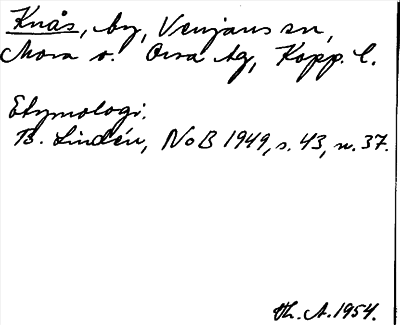 Knås, by, Venjans sn,
Mora o. Orsa tg, Kopp. l.
Etymologi.
B. Lindén, NoB 1949, s. 43, n. 37.
Th. A. 1954.